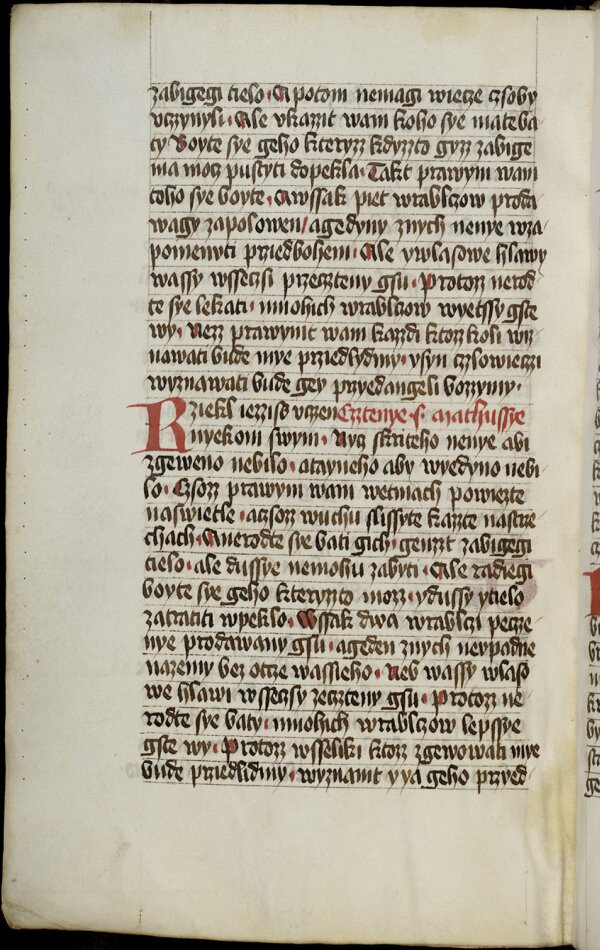 zabigegi tielo · A potom nemagi wiecze czsoby
vczynyli · Ale vkazit wam koho sye mateba
ty Boyte sye geho kteryz kdyzto gyz zabige
ma mocz pustyti dopekla · Takt prawym wam
toho sye boyte · Awssak piet wrablczow proda
wagy zapolowen / agedyny znych nenye wza
pomenyti prziedbohem · Ale ywlasowe hlawy
wassy wsseczsi przeczteny gsu · Protoz nerod
te sye lekati · mnohich wrablczow wyetssy gste
wy · Nez prawymt wam kazdi ktoz koli wyz
nawati bude mye prziedlydmy · ysyn czlowieczi
wyznawati bude gey przyedangeli bozymy ·
Rziekl iezis vczen Cztenye s. Mathussye
nyekom swym · Nycz skriteho nenye abi
zgeweno nebilo · atayneho aby wyedyno nebi
lo · Czsoz prawym wam wetmach powiezte
naswietle · aczsoz wuchu slissyte kazte nastrze
chach · Anerodte sye bati gich · genzt zabigegi
tielo · ale dussye nemohu zabyti · Ale radiegi
boyte sye geho kteryzto moz · ydussy ytielo
zatratiti wpeklo · Wssak dwa wrablczi pecze
nye prodawany gsu · ageden znych neypadne
nazemy bez otcze wassieho · Neb wassy wlaso
we hlawi wsseczsy zecteny gsu · Protoz ne
rodte sye baty · mnohich wrablczow lepssye
gste wy · Protoz wsseliki ktoz zgewowati mye
bude prziedlidmy · wyznamt y ya geho przyed